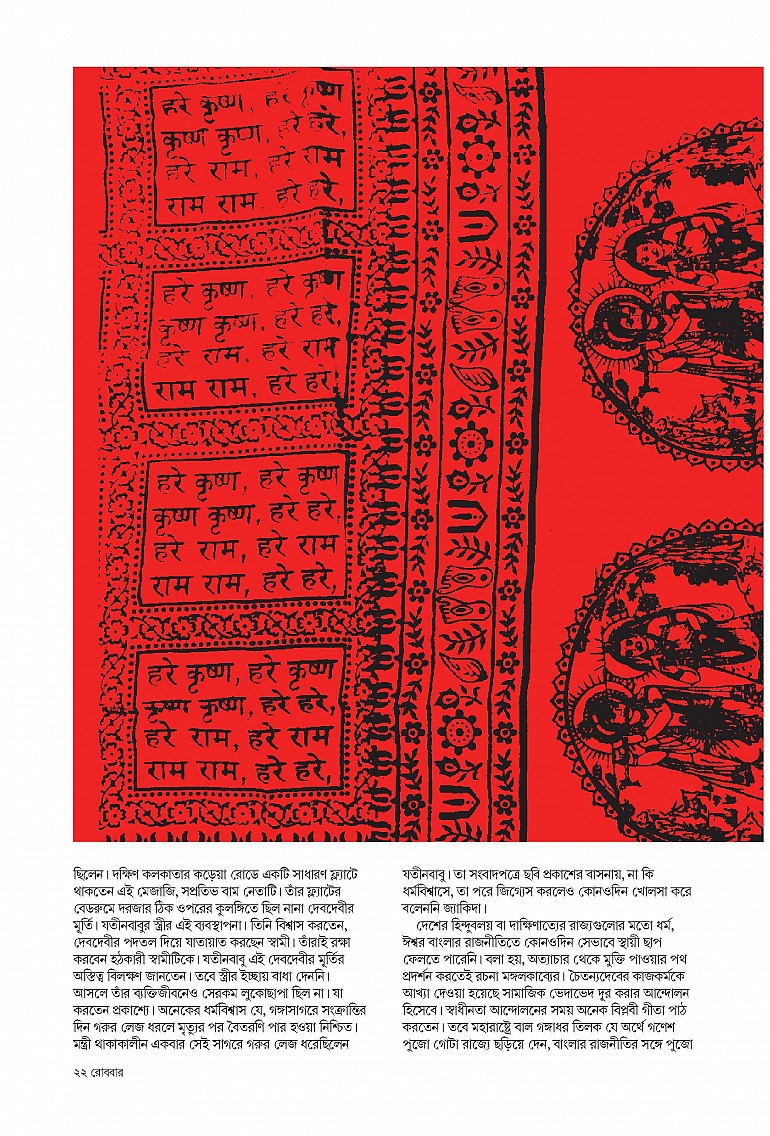 हरे कृष्ण, हरे कृष्ण
कृष्ण कृष्ण, हरे हरे,
हरे राम, हरे राम
राम राम, हरे हरे,
हरे कृष्ण, हरे कृष्ण
कृष्ण कृष्ण, हरे हरे,
हरे राम, हरे राम
राम राम, हरे हरे,
हरे कृष्ण, हरे कृष्ण
कृष्ण कृष्ण, हरे हरे,
हरे राम, हरे राम
राम राम, हरे हरे,
हरे कृष्ण, हरे कृष्ण
कृष्ण कृष्ण, हरे हरे,
हरे राम, हरे राम
राम राम, हरे हरे,
ছিলেন। দক্ষিণ কলকাতার কড়েয়া রোডে একটি সাধারণ ফ্ল্যাটে
থাকতেন এই মেজাজি, সপ্রতিভ বাম নেতাটি। তাঁর ফ্ল্যাটের
বেডরুমে দরজার ঠিক ওপরের কুলঙ্গিতে ছিল নানা দেবদেবীর
মূর্তি। যতীনবাবুর স্ত্রীর এই ব্যবস্থাপনা। তিনি বিশ্বাস করতেন,
দেবদেবীর পদতল দিয়ে যাতায়াত করছেন স্বামী। তাঁরাই রক্ষা
করবেন হঠকারী স্বামীটিকে। যতীনবাবু এই দেবদেবীর মূর্তির
অস্তিত্ব বিলক্ষণ জানতেন। তবে স্ত্রীর ইচ্ছায় বাধা দেননি।
আসলে তাঁর ব্যক্তিজীবনেও সেরকম লুকোছাপা ছিল না। যা
করতেন প্রকাশ্যে। অনেকের ধর্মবিশ্বাস যে, গঙ্গাসাগরে সংক্রান্তির
দিন গরুর লেজ ধরলে মৃত্যুর পর বৈতরণি পার হওয়া নিশ্চিত।
মন্ত্রী থাকাকালীন একবার সেই সাগরে গরুর লেজ ধরেছিলেন
যতীনবাবু। তা সংবাদপত্রে ছবি প্রকাশের বাসনায়, না কি
ধর্মবিশ্বাসে, তা পরে জিগ্যেস করলেও কোনওদিন খোলসা করে
বলেননি জ্যাকিদা।
দেশের হিন্দুবলয় বা দাক্ষিণাত্যের রাজ্যগুলোর মতো ধর্ম,
ঈশ্বর বাংলার রাজনীতিতে কোনওদিন সেভাবে স্থায়ী ছাপ
ফেলতে পারেনি। বলা হয়, অত্যাচার থেকে মুক্তি পাওয়ার পথ
প্রদর্শন করতেই রচনা মঙ্গলকাব্যের। চৈতন্যদেবের কাজকর্মকে
আখ্যা দেওয়া হয়েছে সামাজিক ভেদাভেদ দূর করার আন্দোলন
হিসেবে। স্বাধীনতা আন্দোলনের সময় অনেক বিপ্লবী গীতা পাঠ
করতেন। তবে মহারাষ্ট্রে বাল গঙ্গাধর তিলক যে অর্থে গণেশ
পুজো গোটা রাজ্যে ছড়িয়ে দেন, বাংলার রাজনীতির সঙ্গে পুজো
২২ রোববার